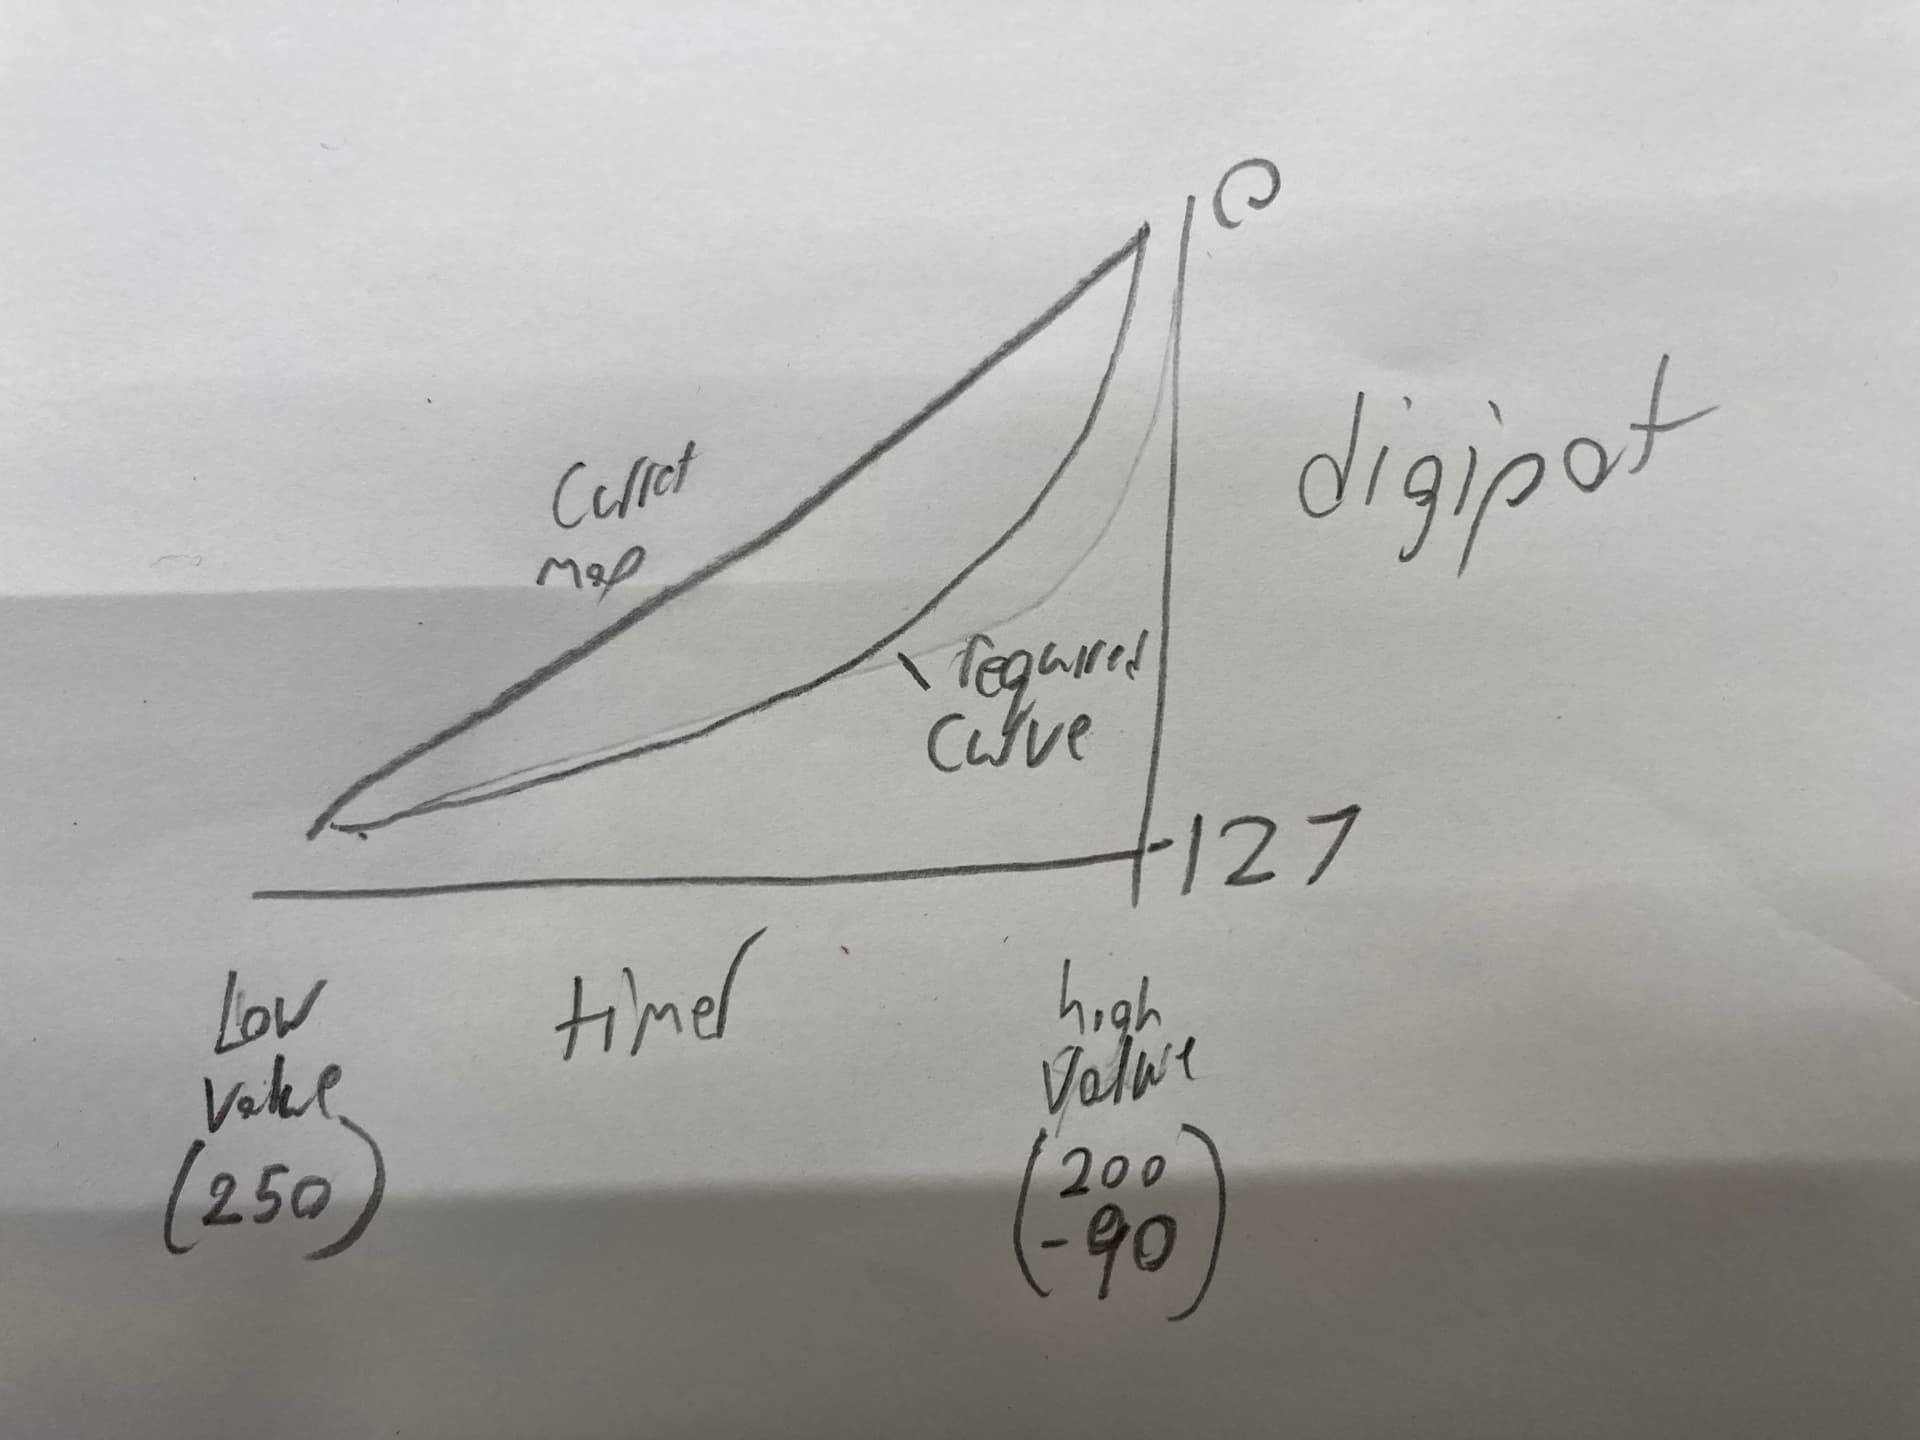 0
digipot
Current
map
required
curve
-127
Low
Value
(250)
timer
high
Value
(200
-90)